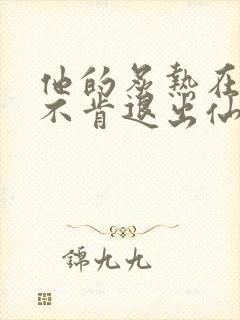 他的炙热在
不肯退出仙
錦九九